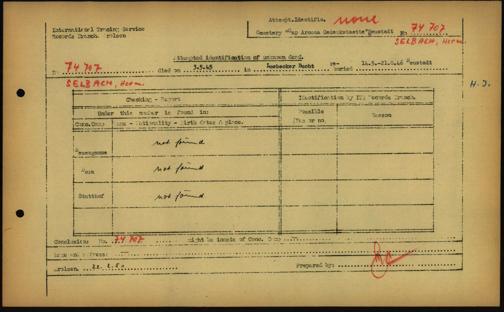 International Tracing Service
Records Branch Arolsen
Attempt.Identific. none
Cemetery "Cap Arcona Gedenkstaette" Neustadt No: 74 707
SELBACH, Herm.
Attempted identification of unknown dead.
No: 74 707 died on 3.5.45 in Luebecker Bucht re-buried 14.5.-21.6.46 Neustadt
SELBACH, Herm.
H. J.
Checking - Report
Identification by ITS Records Branch.
Under this number is found in:
Possible
Yes or no.
Reason
Conc.Camp Name - Nationality - Birth date & place.
Neuengamme not found
not found
Stutthof not found
Conclusion: No. 74 707 might be inmate of Conc. Camp
Arolsen Prepared by: